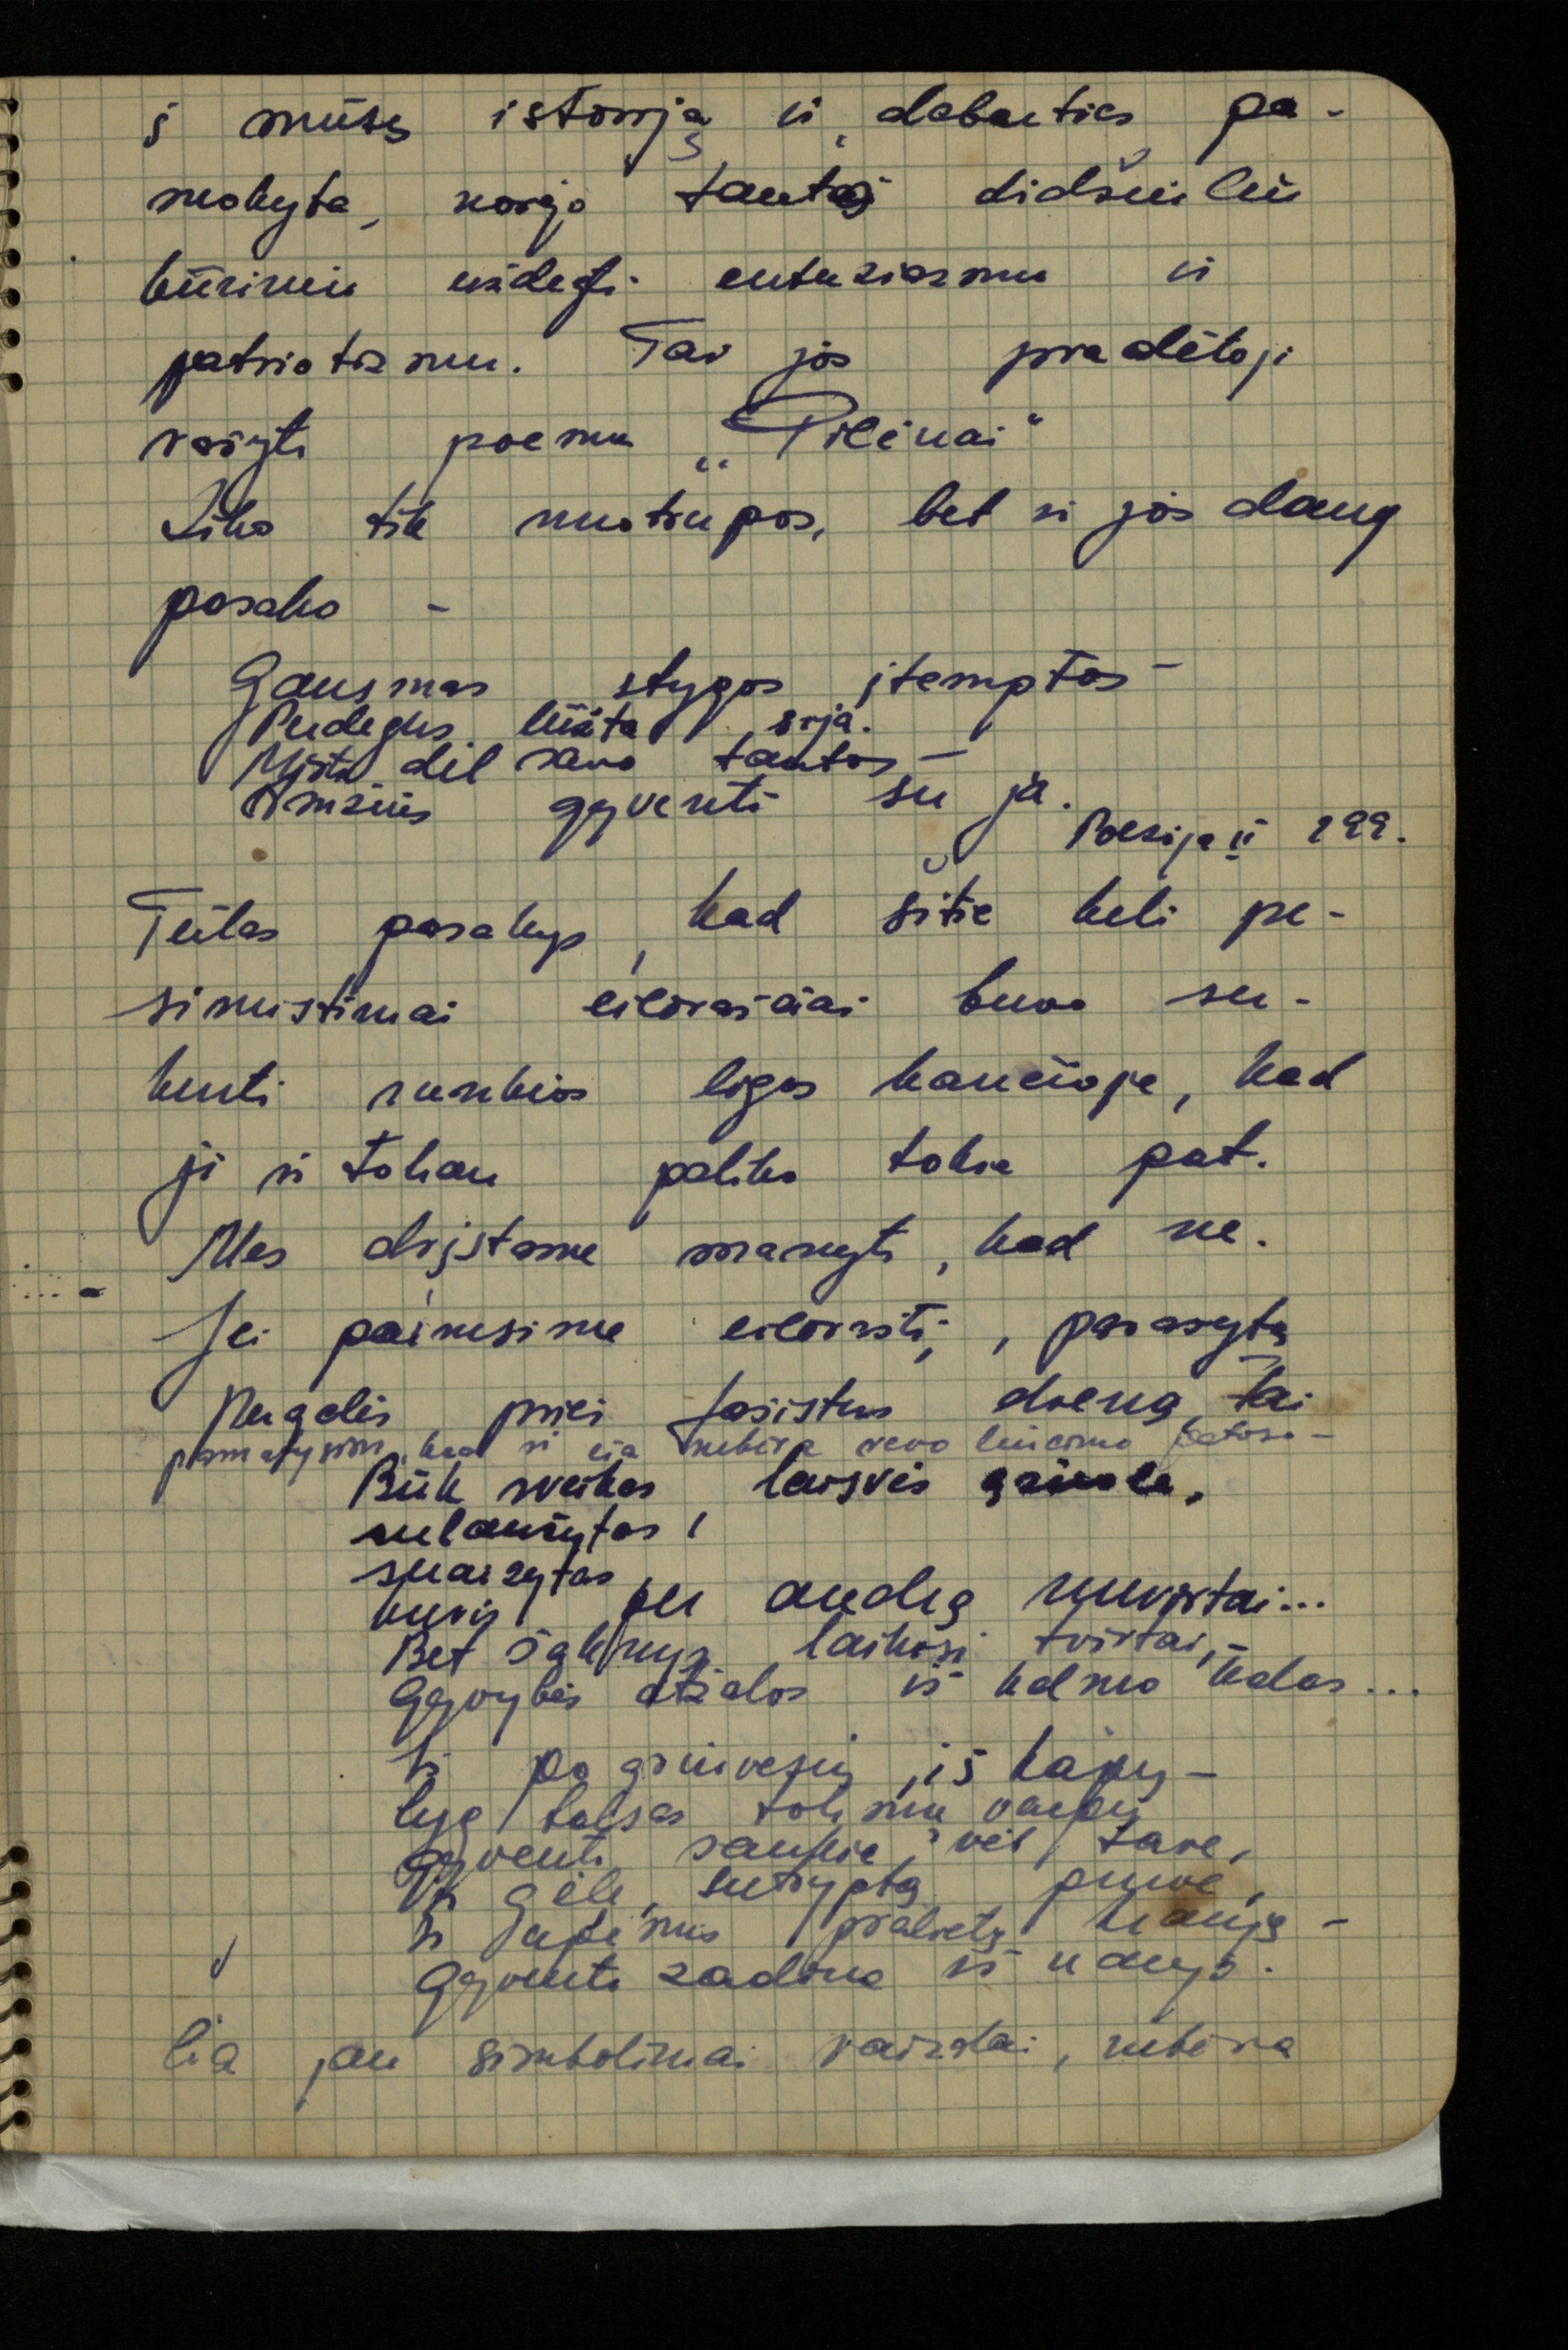 į mūsų istoriją ir dabarties pa-
mokyta, norėjo tautą didžiuliu
kūriniu uždegti entuziazmu ir
patriotizmu. Tai jos pradėtoji
rašyti poema „Pilėnai“
Liko tik nuotrupos, bet ir jos daug
pasako –
Gausmas stygos įtemptos –
Perdegus lūžta ji.
Mirti dėl savo tautos –
Amžius gyventi su ja.
Poezija II 299.
Tūlas pasakys, kad šitie keli pe-
simistiniai eilėraščiai buvo su-
kurti sunkios ligos kančioje, kad
ji ir toliau paliko tokia pat.
Mes drįstame manyti, kad ne.
Jei paimsime eilėraštį, parašytą
Pergalės prieš fašistus dieną, tai
pamatysim, kad ir čia nebėra vien liūdimo
Būk sveikas, laisvės ąžuole,
sulaužytas,
suaižytas,
kuris per audrą nuvirtai...
Bet šaknys laikosi tvirtai, –
Gyvybės atžalos iš kelmo kalas...
Ir po griuvėsių, iš kapų –
lyg balsas tolimų varpų
Gyventi šaukia vėl tave,
Ir gėlę, sutryptą purve,
Ir žadėjimus pralietą kraują –
Gyventi žadina iš naujo.
Čia jau simboliniai vaizdai, nebėra